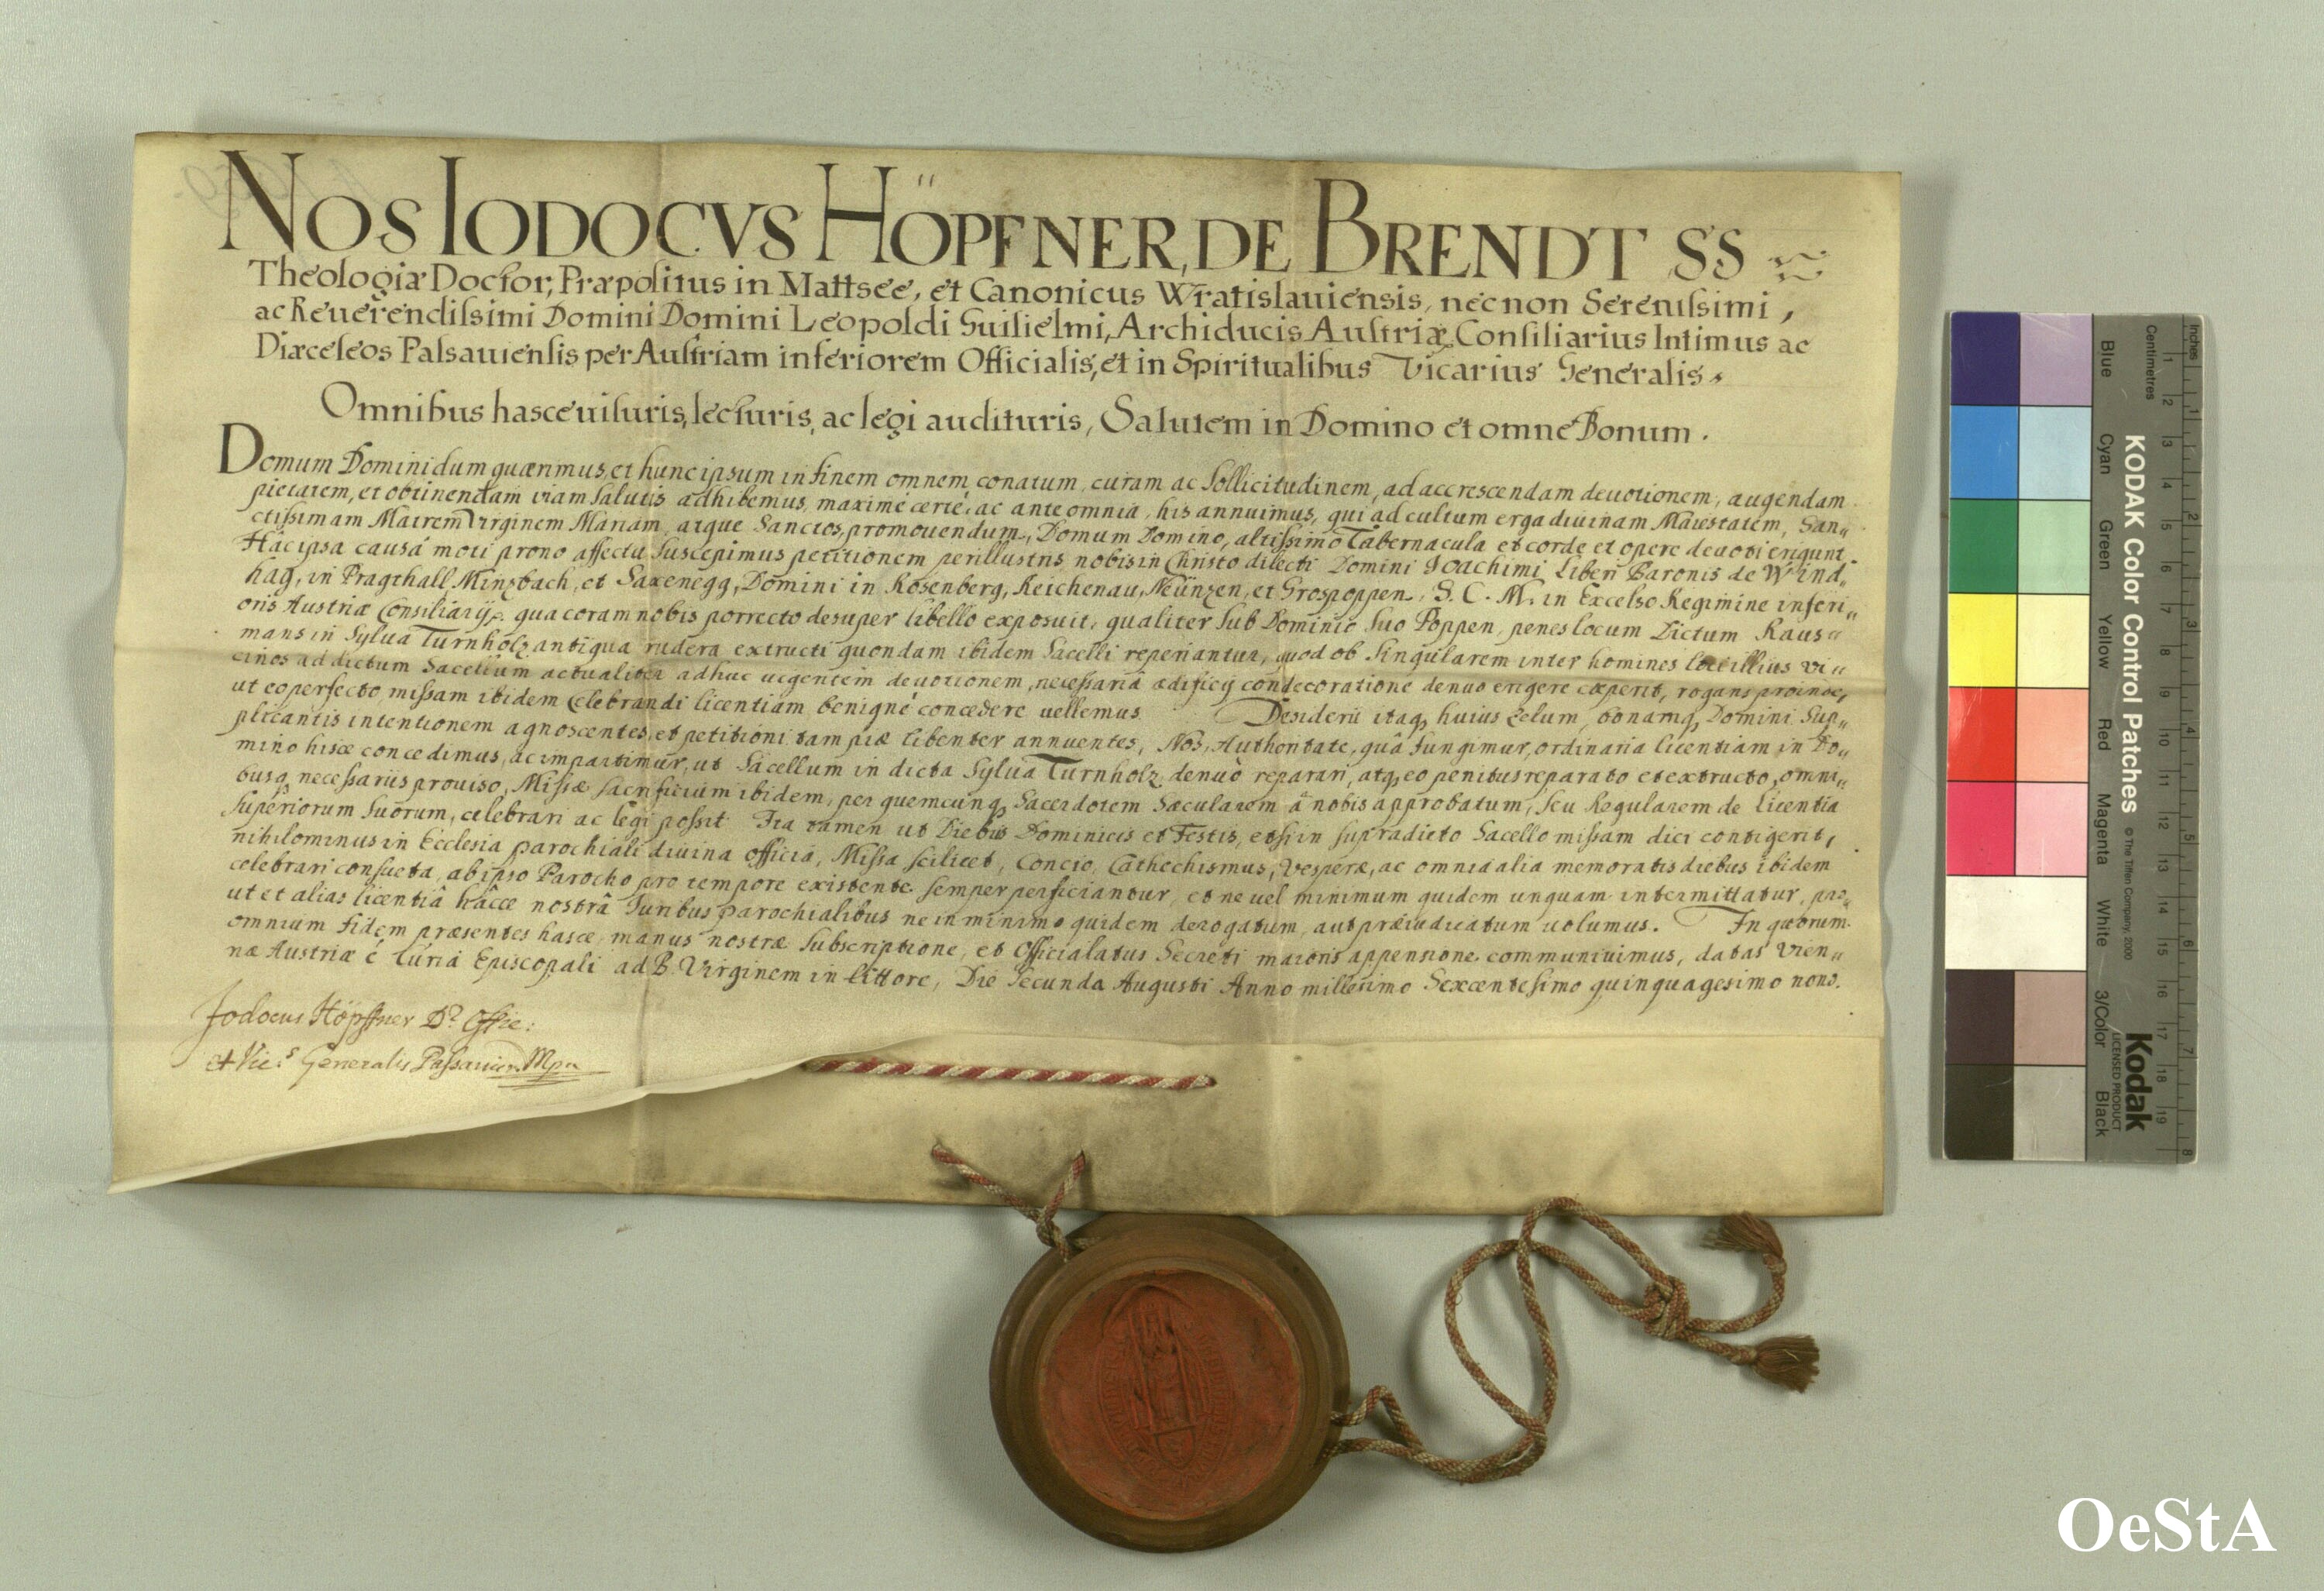 NOS IODOCVS HÖPFNER, DE BRENDT SS
Theologiæ Doctor, Præpositus in Mattsee, et Canonicus Wratislauiensis, necnon Serenissimi,
ac Reuerendissimi Domini Domini Leopoldi Guilielmi, Archiducis Austriæ, Consiliarius Intimus ac
Diæceseos Passauiensis per Austriam inferiorem Officialis, et in Spiritualibus Vicarius Generalis,
Omnibus hasce uisuris, lecturis, ac legi audituris, Salutem in Domino et omne Bonum.
Domum Domini dum quærimus, et hunc ipsum in finem omnem conatum, curam ac sollicitudinem, ad accrescendam deuotionem, augendam
pietatem, et obtinendam viam salutis adhibemus, maximé certé, ac ante omnia, his annuimus, qui ad cultum erga diuinam Maiestatem, San„
ctissimam Matrem Virginem Mariam, atque Sanctos, promouendum, Domum Domino, altissimo Tabernacula et corde et opere deuoti erigunt.
Hâc ipsa causâ moti prono affectu suscepimus petitionem perillustris, nobis in Christo dilecti Domini Joachimi Liberi Baronis de Wind„
hag, in Pragthall Minzbach, et Saxenegg, Domini in Rosenberg, Reichenau, Neünzen, et Grospoppen, S. C. M. in Excelso Regimine inferi„
oris Austriæ Consiliarij, qua coram nobis porrecto desuper libello exposuit, qualiter sub Dominio suo Poppen, penes locum Dictum Raus„
mans in Sylua Turnholz antiqua rudera extructi quondam ibidem Sacelli reperiantur, quod ob singularem inter homines loci illius vi„
cinos ad dictum Sacellum actualiter adhuc uigentem deuotionem, necessaria ædificij condecoratione denuo erigere cæperit, rogans proinde,
ut eo perfecto, missam ibidem Celebrandi licentiam benigné concedere uellemus. Desiderii itaq, huius zelum, bonamq, Domini Sup„
plicantis intentionem agnoscentes, et petitioni tam piæ libenter annuentes, Nos, Authoritate, quâ fungimur, ordinaria licentiam in Do„
mino hisce concedimus, ac impartimur, ut Sacellum in dicta Sylua Turnholz denuò reparari, atq, eo penitus reparato et extructo, omni„
busq, necessariis prouiso, Missæ sacrificium ibidem, per quemcunq, Sacerdotem Sæcularem â nobis approbatum, seu Regularem de licentia
Superiorum suorum, celebrari ac legi possit. Ita tamen ut Diebus Dominicis et Festis, etsi in supradicto Sacello missam dici contigerit,
nihilominus in Ecclesia parochiali diuina officia, Missa scilicet, Concio, Cathechismus, Vesperæ, ac omnia alia memoratis diebus ibidem
celebrari consueta, ab ipso Parocho pro tempore existente semper perficiantur, et ne uel minimum quidem unquam intermittatur, pro„
ut et alias licentiâ hâcce nostrâ Iuribus parochialibus ne in minimo quidem derogatum, aut præiudicatum uolumus. In quorum
omnium fidem præsentes hasce, manus nostræ subscriptione, et Officialatus Secreti maioris appensione communiuimus, datas Vien„
næ Austriæ é Curiâ Episcopali ad B. Virginem in littore, Die Secunda Augusti Anno millesimo Sexcentesimo quinquagesimo nono.
Jodocus Höpffner Dr. Offic:
et Vic.s Generalis Passauien. Mpr
Inches
Centimetres
KODAK Color Control Patches
© The Tiffen Company, 2000
Blue Cyan Green Yellow Red Magenta White 3/Color Black
Kodak
LICENSED PRODUCT
1 2 3 4 5 6 7 8 9 10 11 12 13 14 15 16 17 18 19
1 2 3 4 5 6 7 8
OeStA